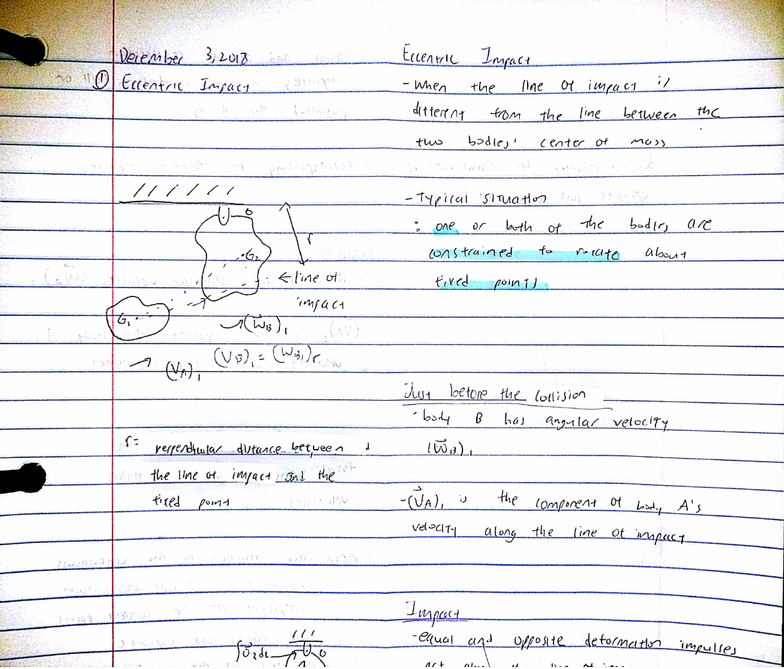 December 3, 2018
① Eccentric Impact
O
r
G₂
← line of
impact
G₁
(ω⃗B)₁
(VA)₁
(VB)₁ = (ωB)₁r
r = perpendicular distance between
the line of impact and the
fixed point
Eccentric Impact
- When the line of impact is
different from the line between the
two bodies' center of mass
- Typical situation
: one or both of the bodies are
constrained to rotate about
fixed points
Just before the collision
· body B has angular velocity
(ω⃗B)₁
- (V⃗A)₁ is the component of body A's
velocity along the line of impact
Impact
- equal and opposite deformation impulses
O